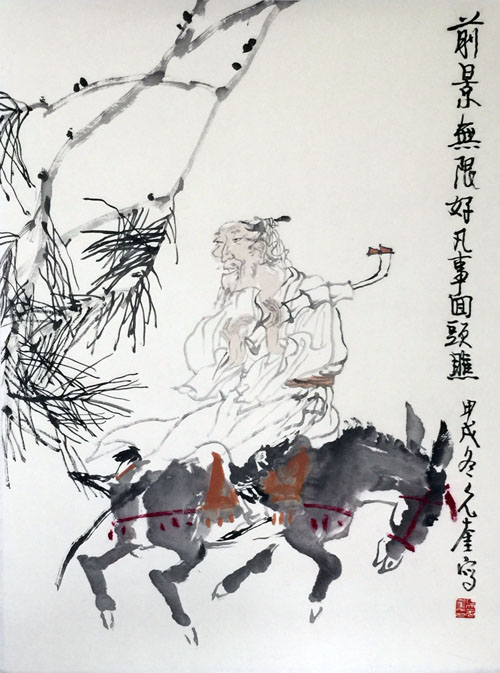 前景無限好凡事回頭瞧
甲戌冬允奎寫